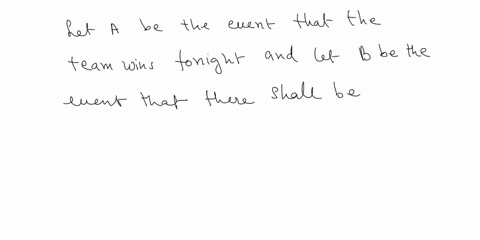 Let A be the event that the
team wins tonight and let B be the
event that there shall be